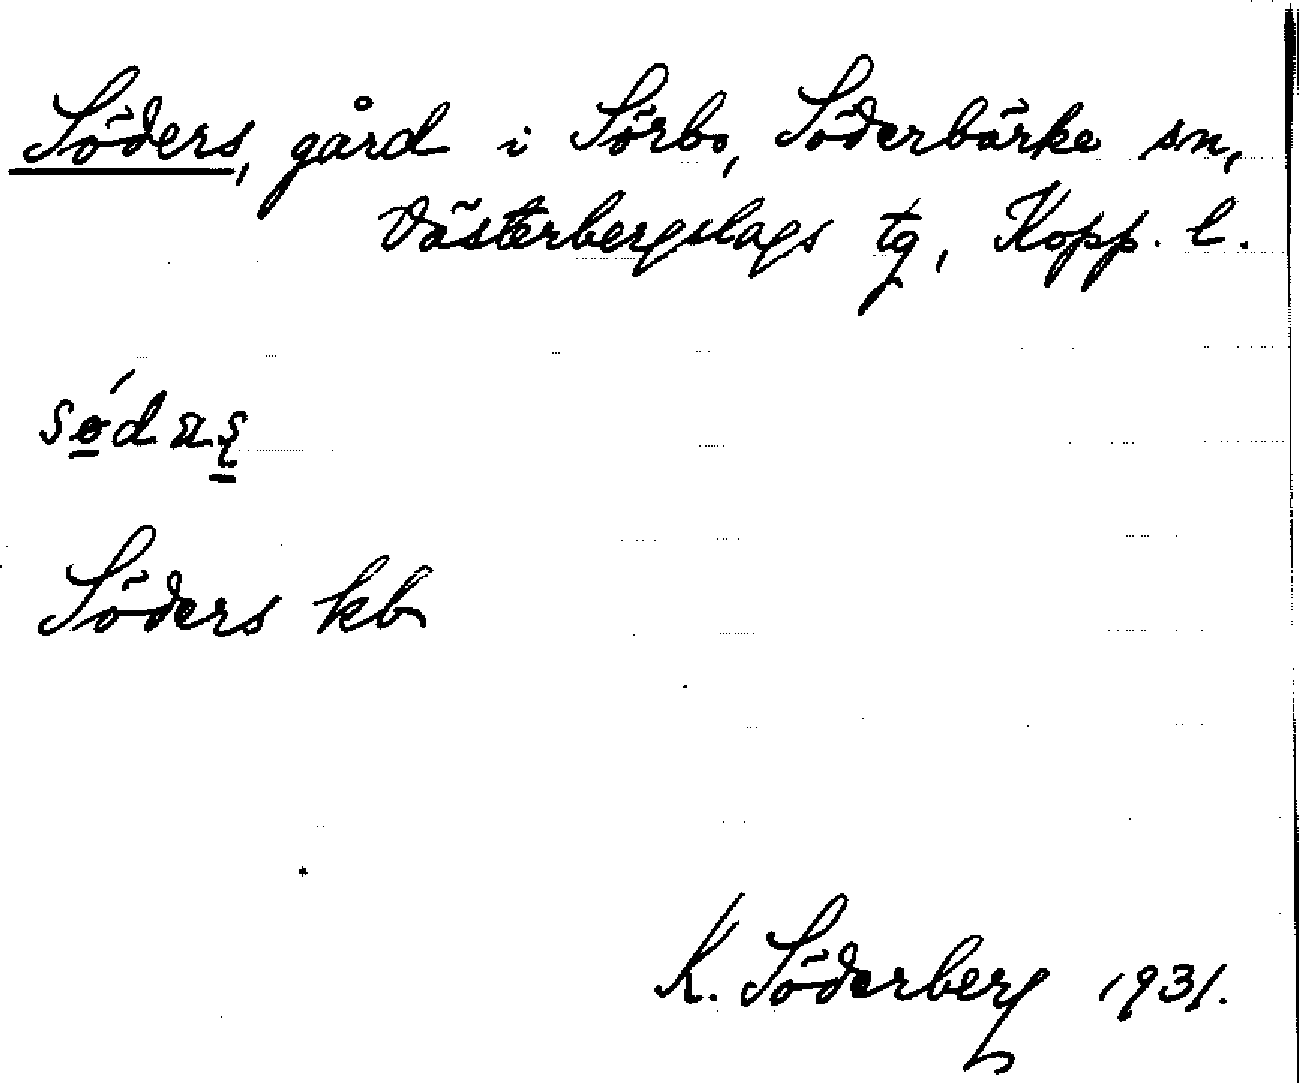 Söders, gård i Sörbo, Söderbärke sn,
Västerbergslags tg, Kopp. l.
Söders kb
K. Söderberg 1931.